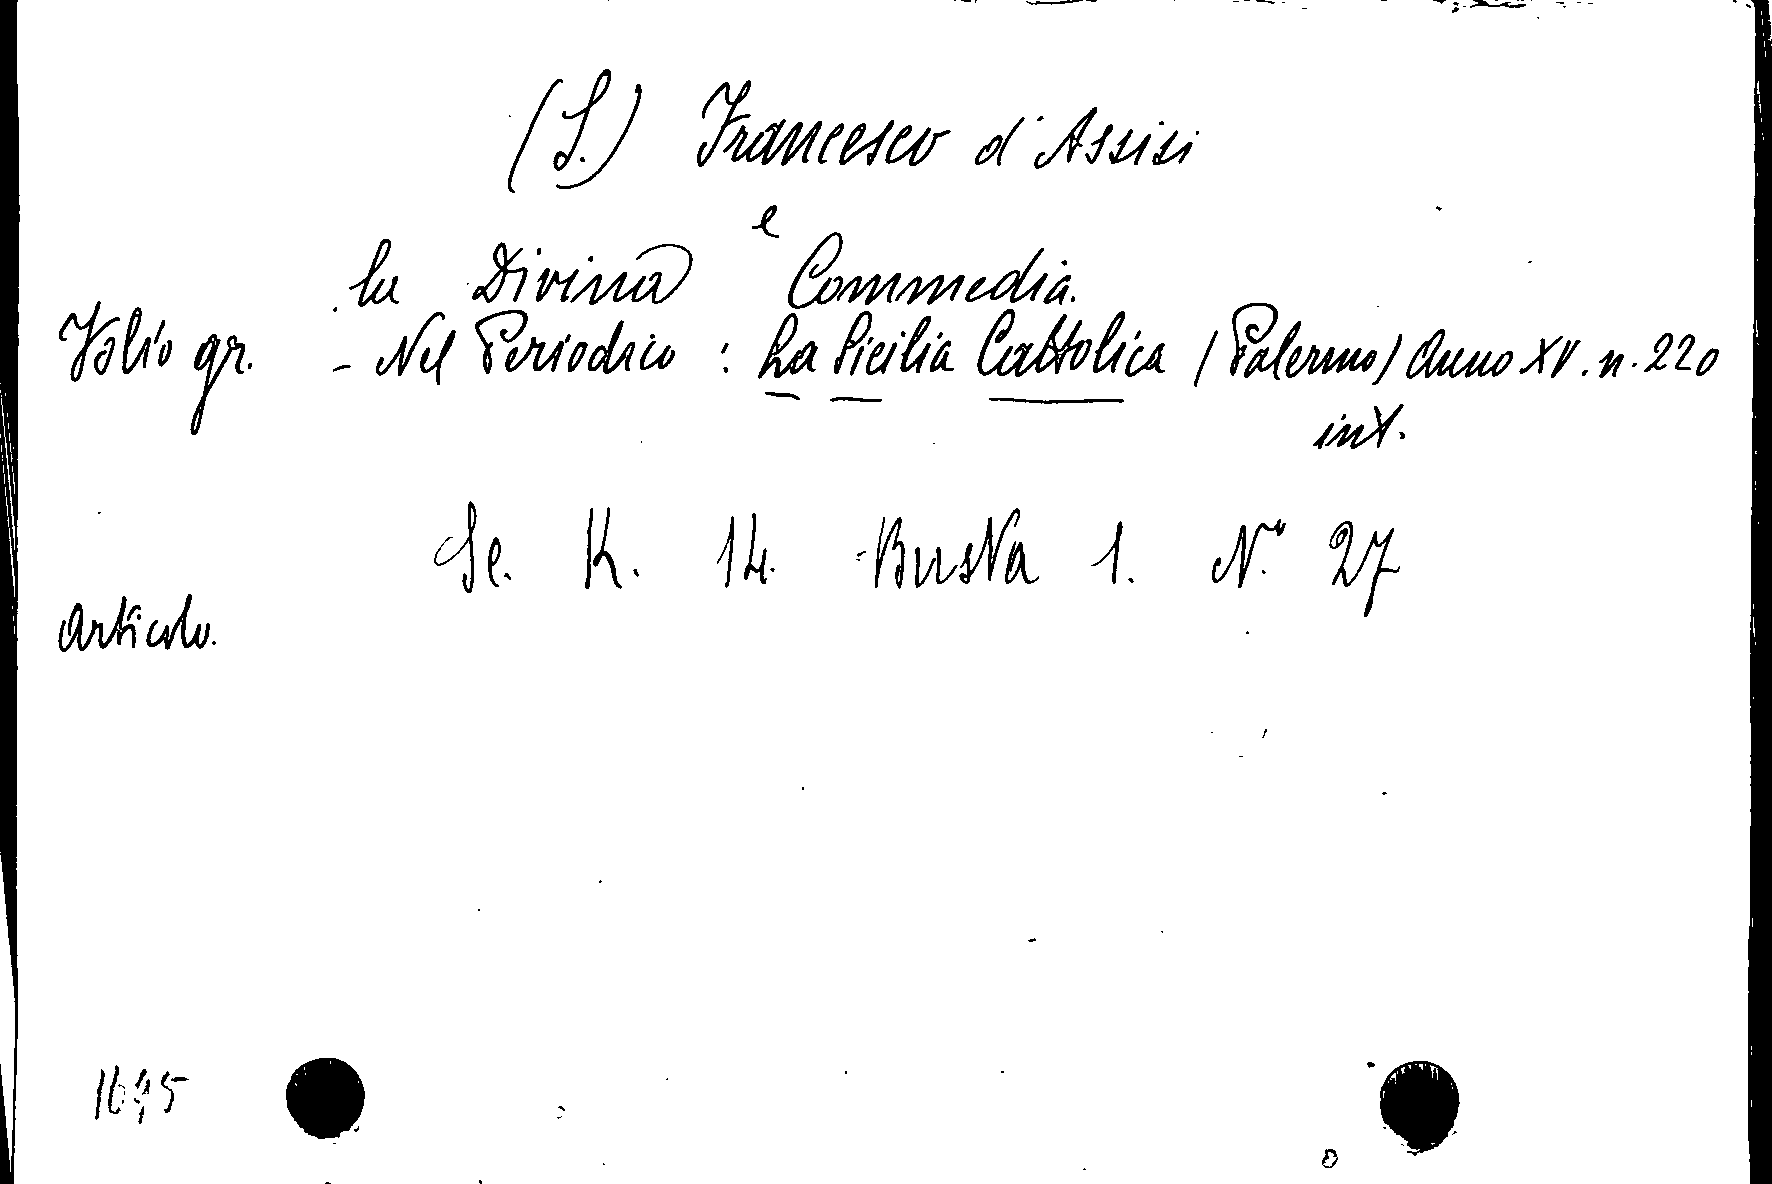 (S.) Francesco d'Assisi
e
la Divina Commedia.
Folio gr. - Nel Periodico : La Sicilia Cattolica (Palermo) Anno XV. n. 220
int.
Se. K. 14. Busta 1. N.º 27
Articolo.